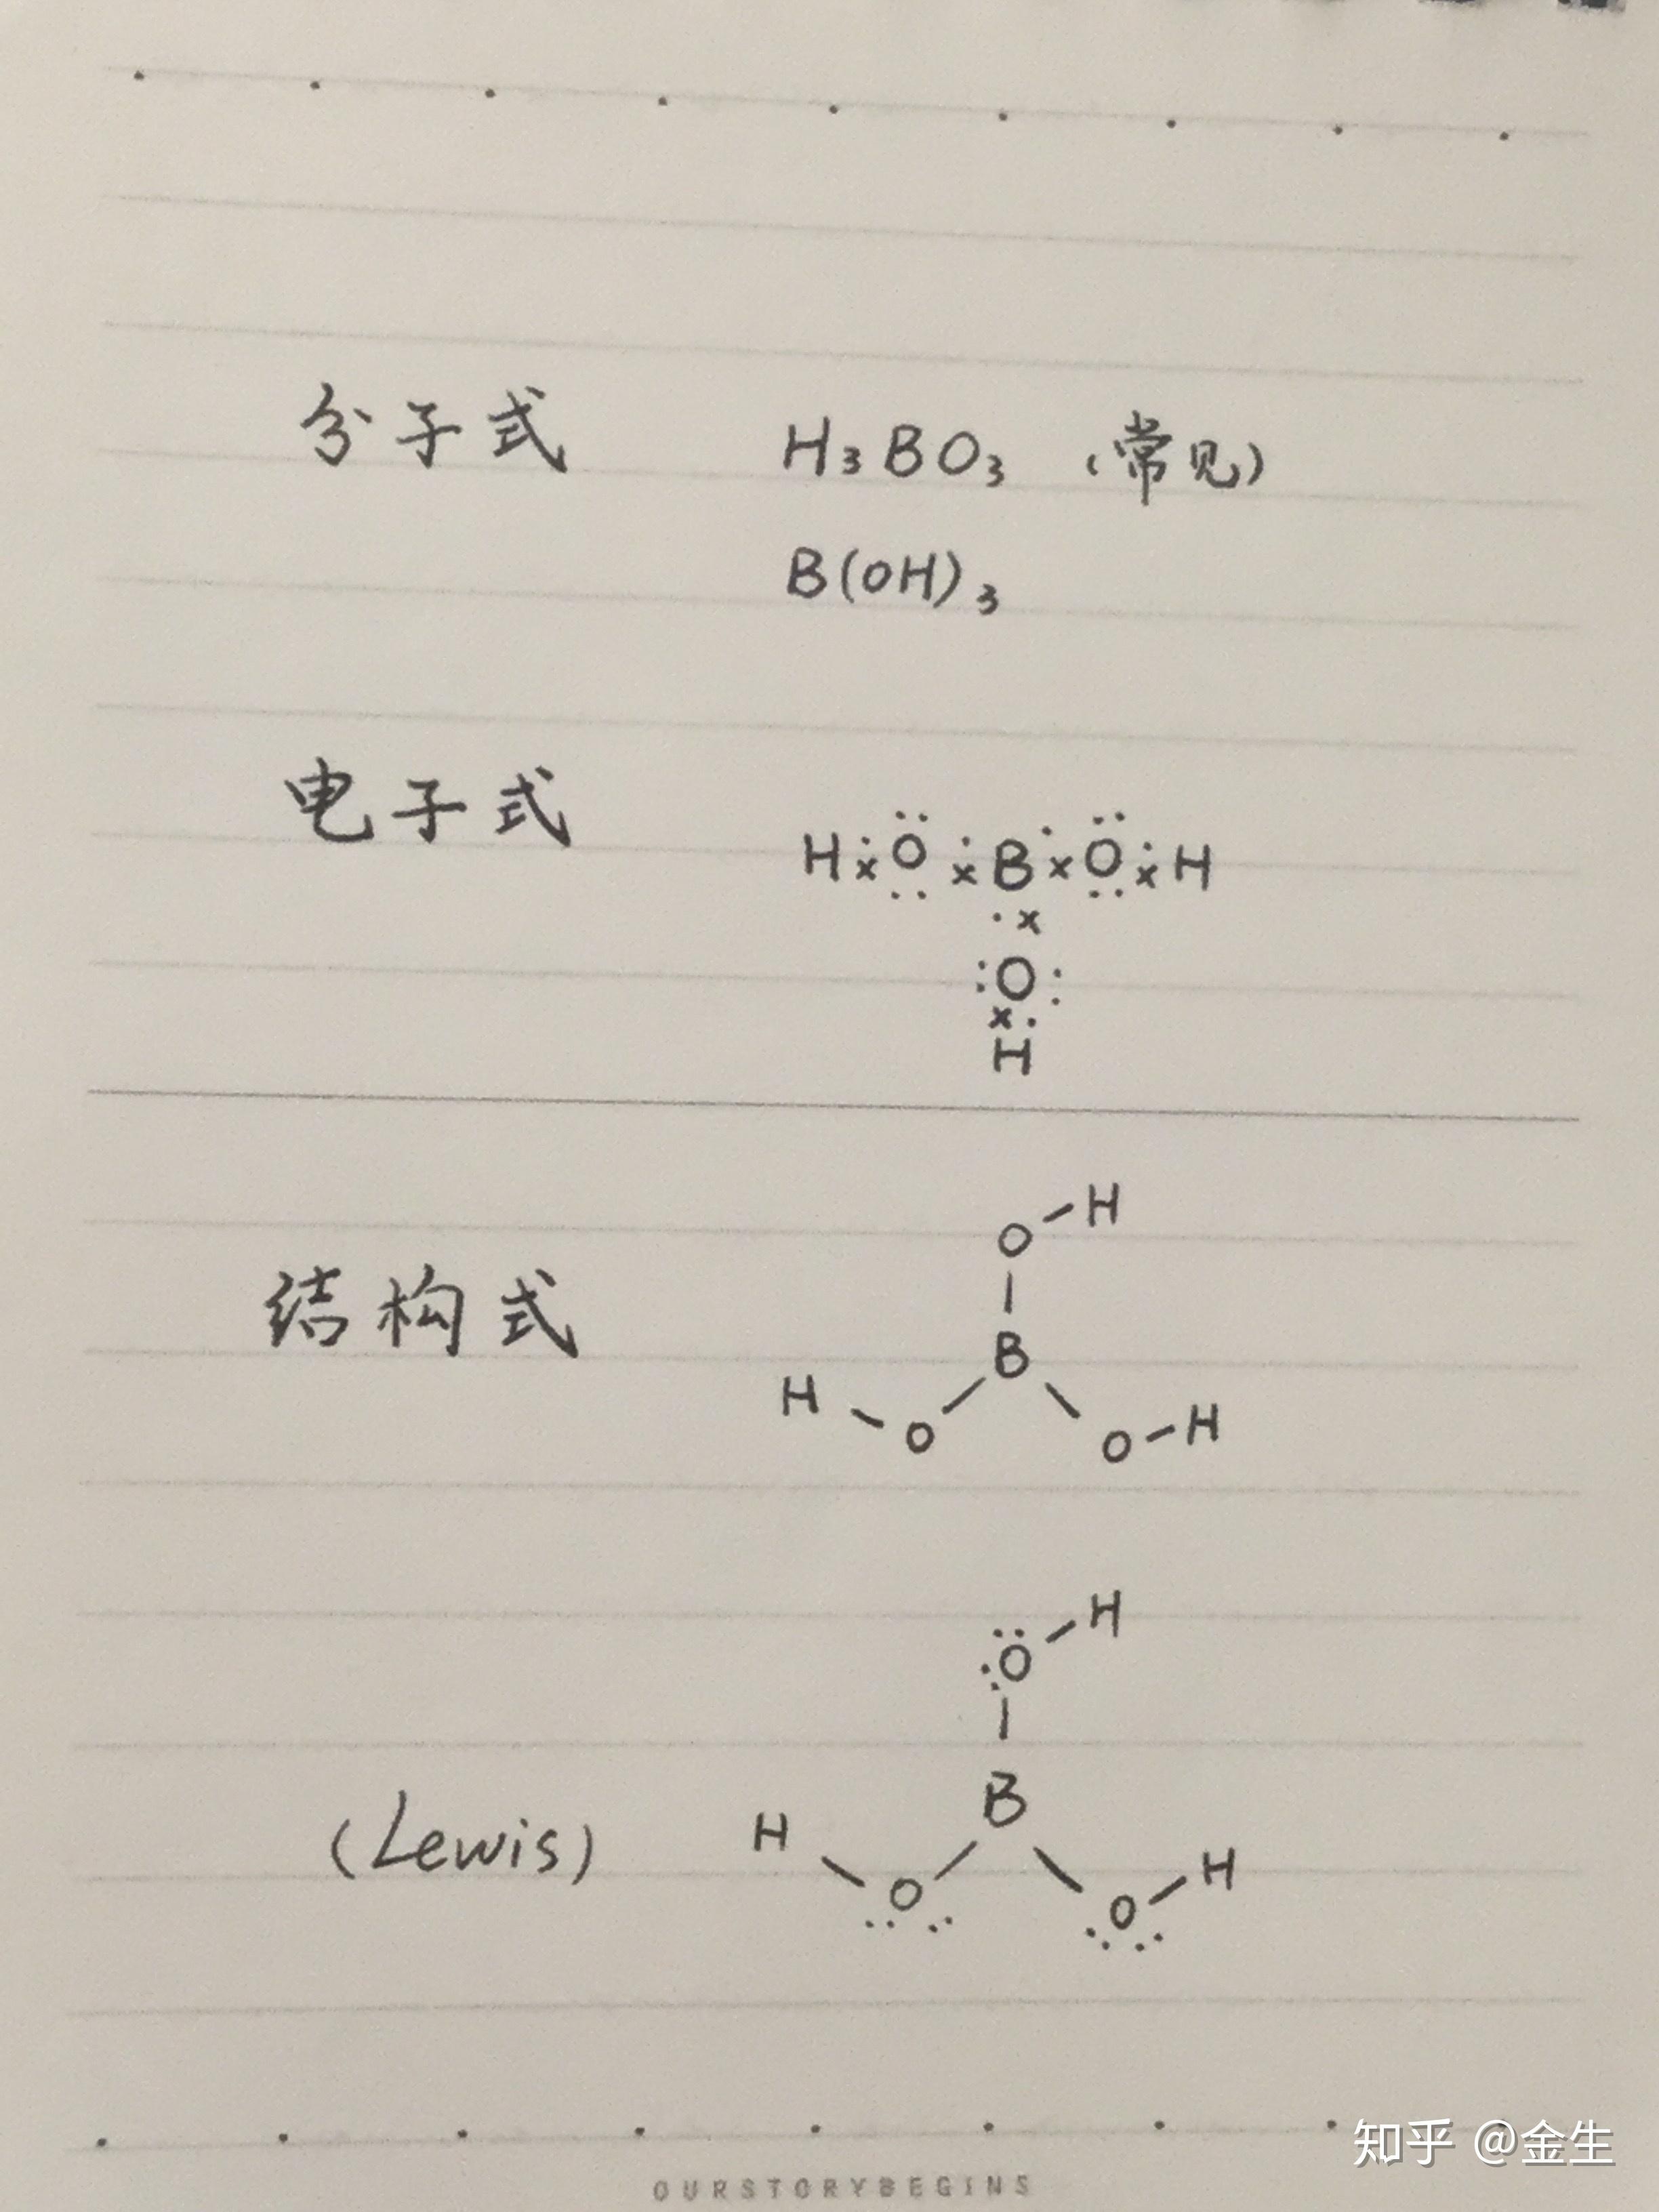 分子式 H₃BO₃ (常见)
B(OH)₃
电子式 H O B O H
O
H
O H
结构式 B
H O O H
O H
B
(Lewis) H O O H
知乎 @金生
OURSTORYBEGINS